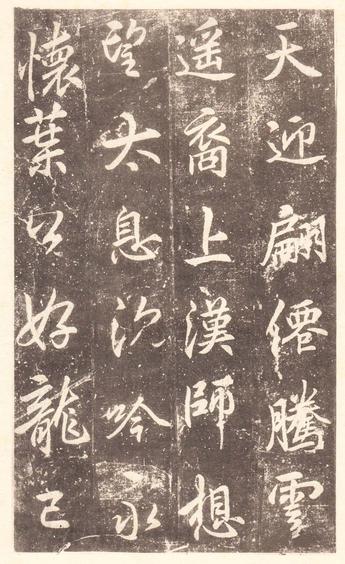 天迎翩僊騰雲
遥裔上漢師想
望太息沉吟永
懷葉公好龍已